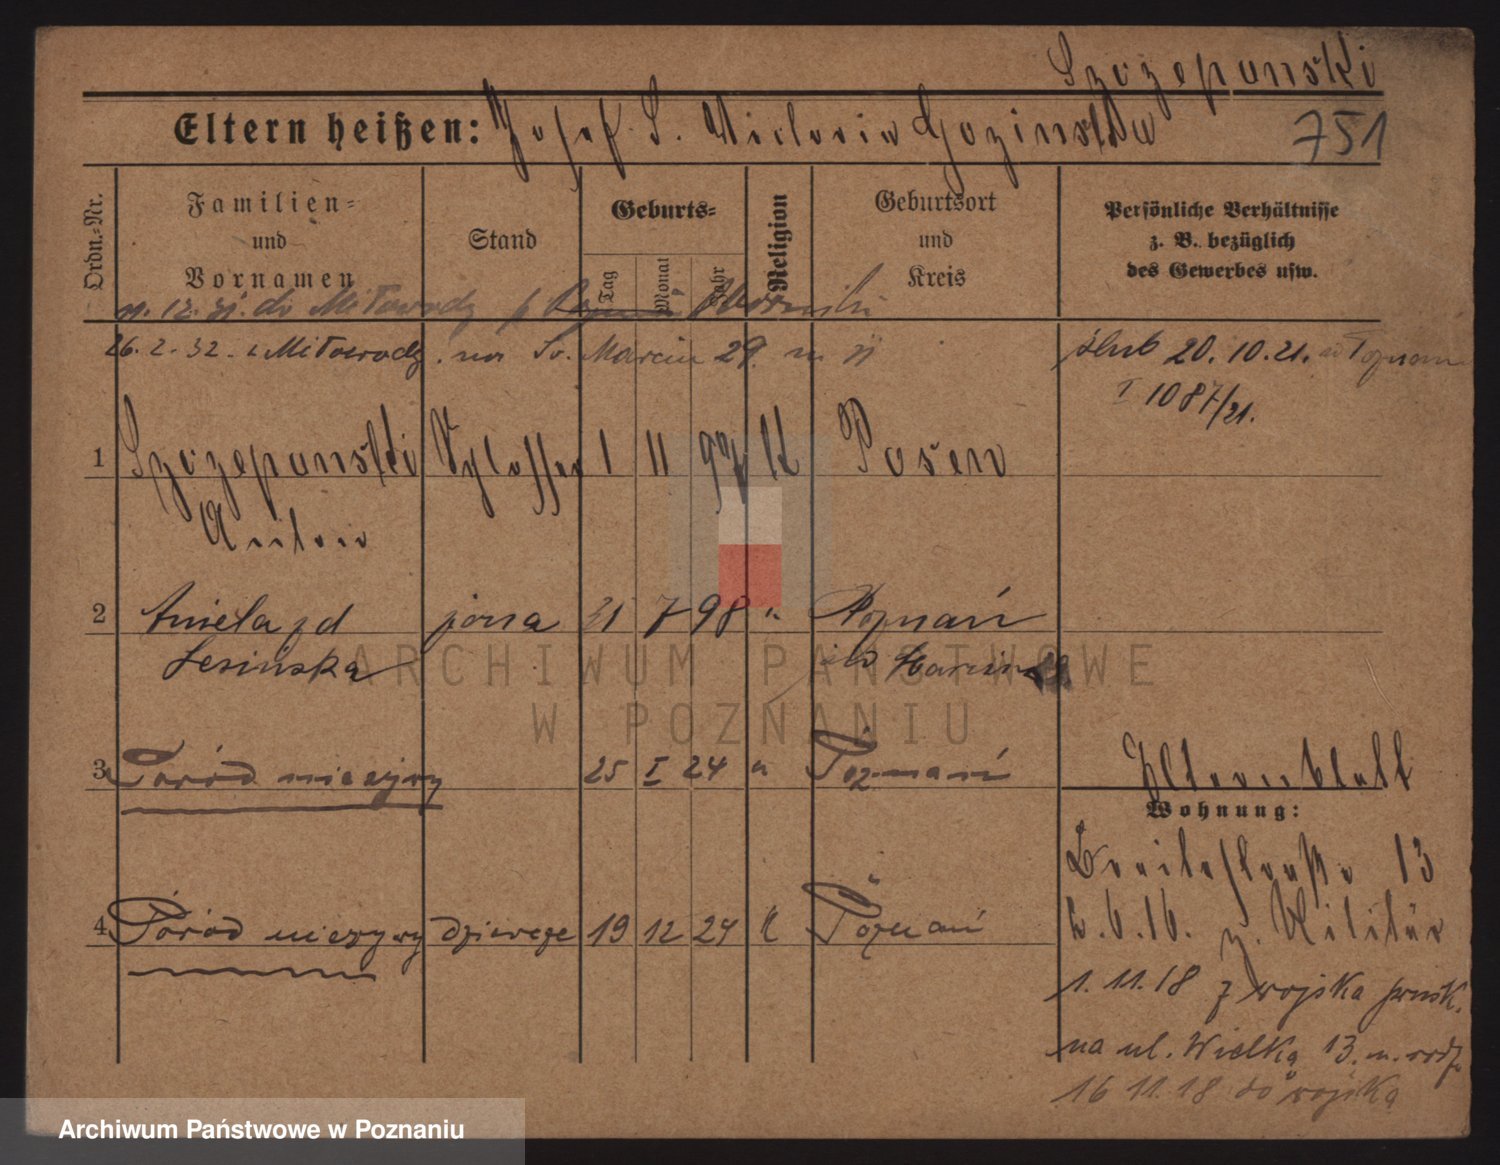 Szczepanski
Eltern heißen: Josef S. Victoria
751
Ordn.-Nr.
Familien- und Vornamen
Stand
Geburts-
Tag
Monat
Jahr
Religion
Geburtsort und Kreis
Persönliche Verhältnisse z. B. bezüglich des Gewerbes usw.
11. 12. 31. do Miłowody
26. 2. 32. z Miłowody. na Św. Marcin 29. m
ślub 20. 10. 21. w Poznan
I 1087/21.
1 Szczepanski Schlosser 1 11 97 K Posen
Anton
2 Aniela zd żona 31 7 98 " Poznań
Lesińska
św Marcin
3 Poród nieżywy 25 I 24 " Poznań
Elternblatt
Wohnung:
Breitestraße 13
4 Poród nieżywy dziewcze 19 12 24 K Poznań
2.6.16. z. Militär
1. 11. 18 z wojska prusk.
na ul. Wielką 13. u. rodz.
16 11. 18 do wojska
ARCHIWUM PAŃSTWOWE
W POZNANIU
Archiwum Państwowe w Poznaniu